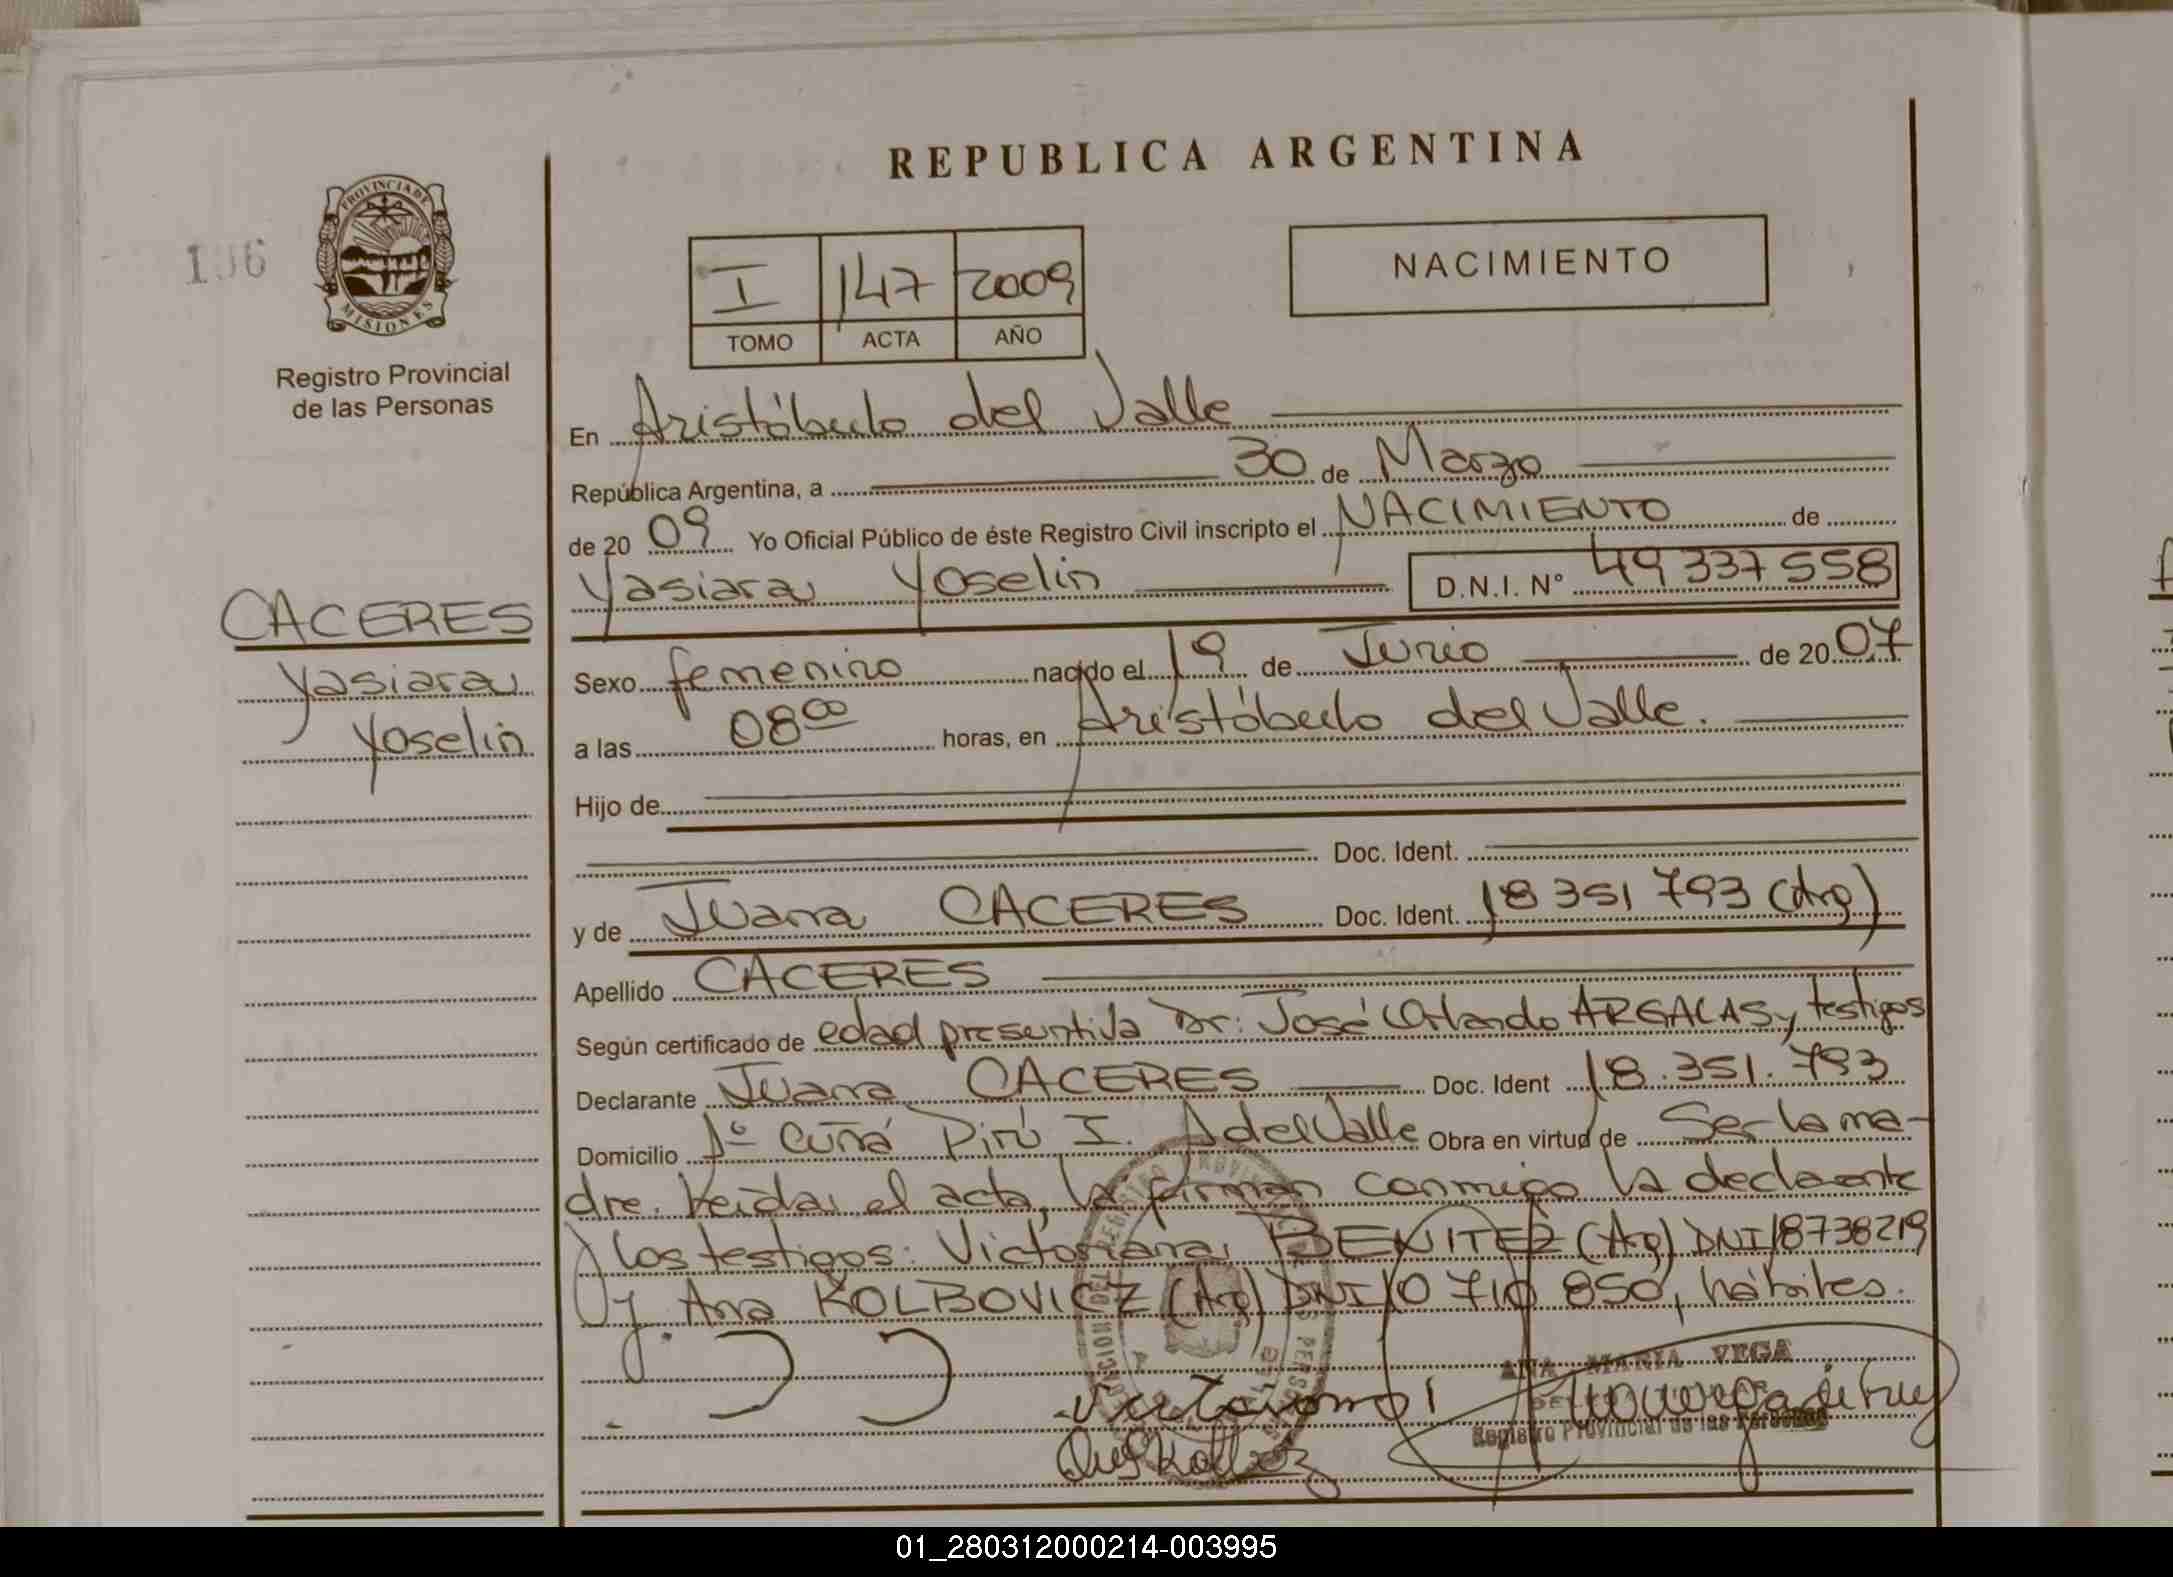 REPUBLICA ARGENTINA
PROVINCIA DE
MISIONES
Registro Provincial
de las Personas
I 147 2009
TOMO ACTA AÑO
NACIMIENTO
En Aristóbulo del Valle
República Argentina, a 30 de Marzo
de 2009 Yo Oficial Público de éste Registro Civil inscripto el NACIMIENTO de
Yasiara Yoselin D.N.I. N° 49337558
CACERES
Yasiara
Yoselin
Sexo femenino nacido el 19 de Junio de 2007
a las 08 00 horas, en Aristóbulo del Valle.
Hijo de
Doc. Ident.
y de Juana CACERES Doc. Ident. 18 351 793 (Arg)
Apellido CACERES
Según certificado de edad presuntiva Dr. José Orlando ARGALAS y testigos
Declarante Juana CACERES Doc. Ident 18.351.793
Domicilio Aº Cuñá Pirú I. A del Valle Obra en virtud de Ser la ma-
dre. Leída el acta, la firman conmigo la declarante
y los testigos: Victoriana BENITEZ (Arg) DNI 18738219
y Ana KOLBOVICZ (Arg) DNI 10 710 850, hábiles.
ANA MARIA VEGA
Registro Provincial de las Personas
01_280312000214-003995